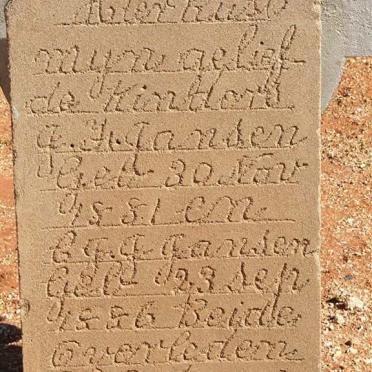 Hier Rust
myn gelief
de Kinders
J. J. Jansen
Geb 30 Nov
1881 en
J. J. Jansen
Geb 23 Sep
1886 Beide
Overleden